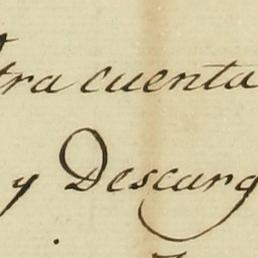 tra cuenta
y Descarg